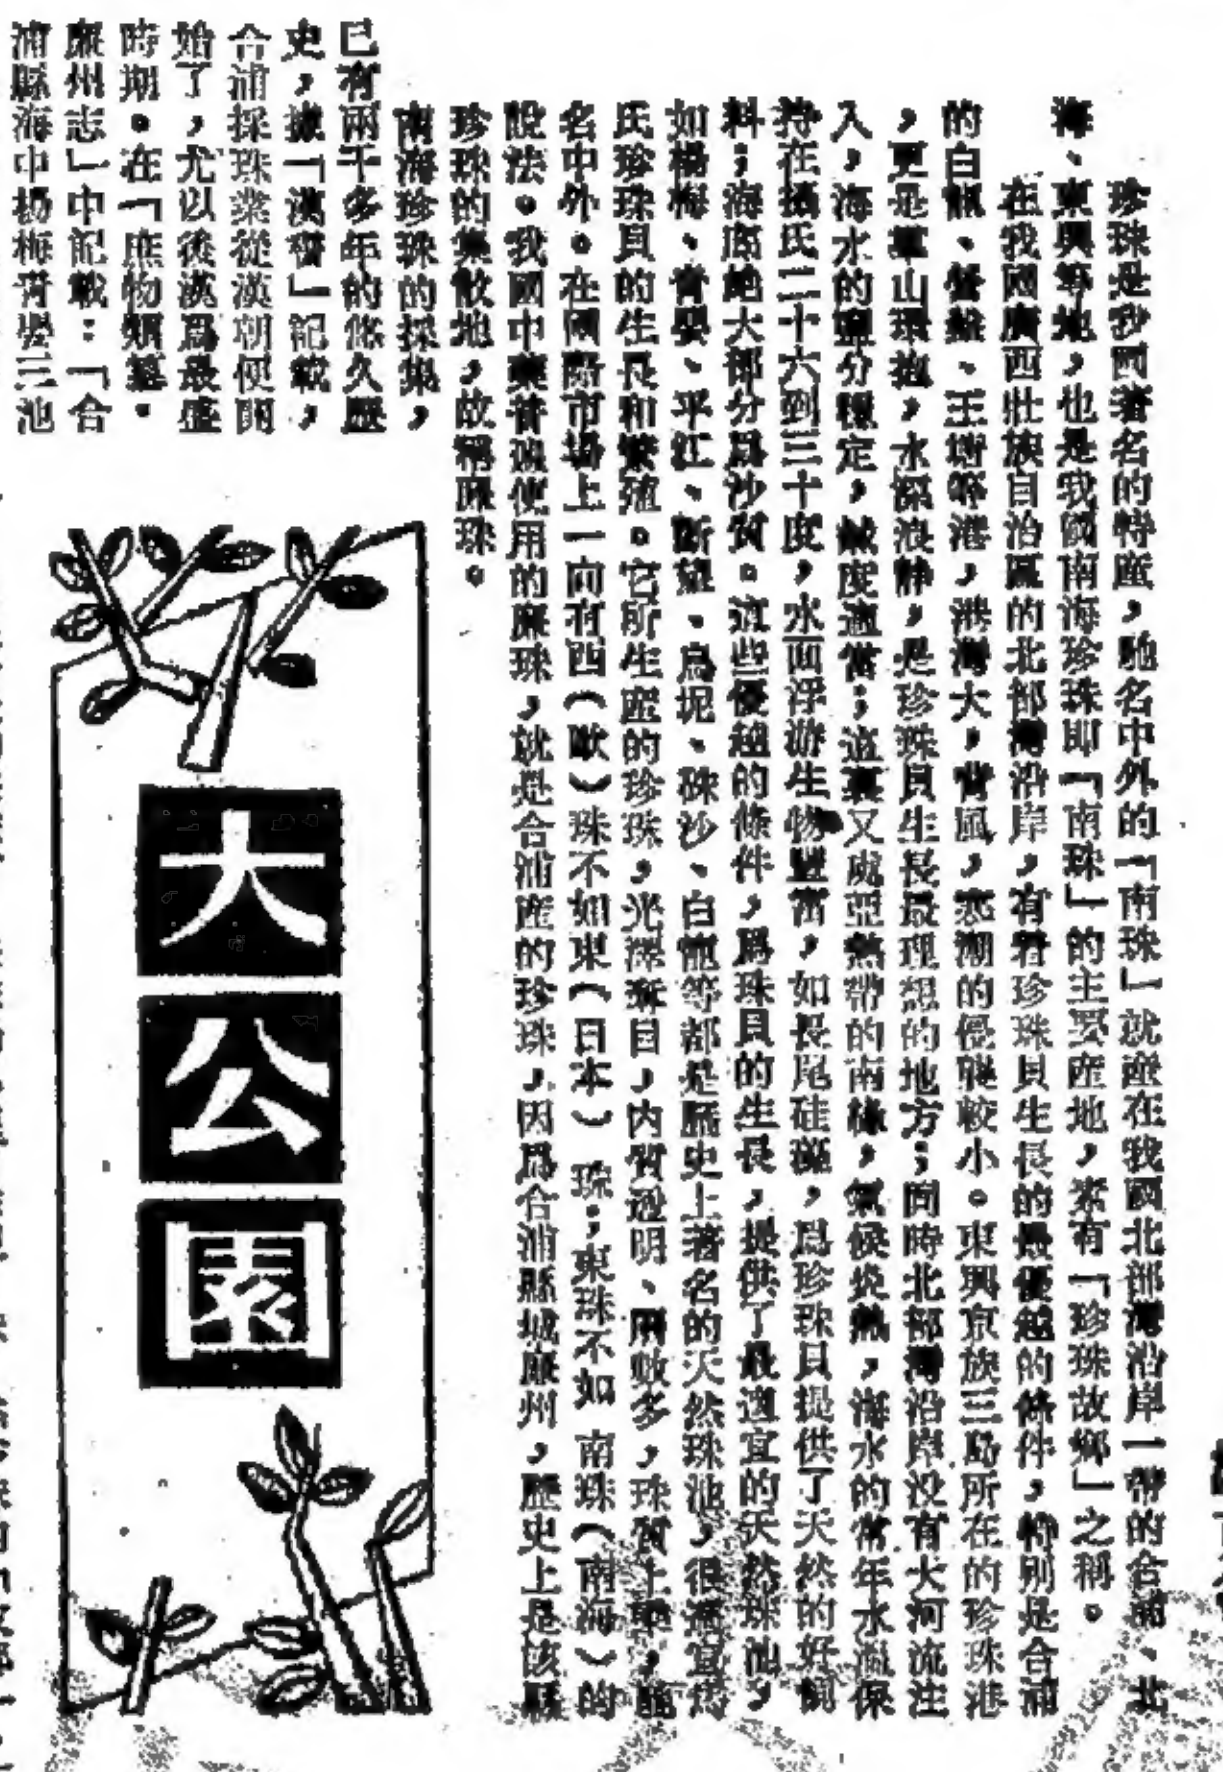 珍珠是我國著名的特產，馳名中外的「南珠」就產在我國北部灣沿岸一帶的合浦、北
海、東興等地，也是我國南海珍珠即「南珠」的主要產地，素有「珍珠故鄉」之稱。
在我國廣西壯族自治區的北部灣沿岸，有着珍珠貝生長的最優越的條件，特別是合浦
的白龍、營盤、王塘等港，港灣大，背風，寒潮的侵襲較小。東興京族三島所在的珍珠港
，更是羣山環抱，水深浪靜，是珍珠貝生長最理想的地方；同時北部灣沿岸没有大河流注
入，海水的鹽分穩定，鹹度適當；這裏又處亞熱帶的南緣，氣候炎熱，海水的常年水溫保
持在攝氏二十六到三十度，水面浮游生物豐富，如長尾硅藻，爲珍珠貝提供了天然的好飼
料；海底地大部分爲沙質。這些優越的條件，爲珠貝的生長，提供了最適宜的天然珠池，
如楊梅、青嬰、平江、斷望、烏坭、硃沙、白龍等都是歷史上著名的天然珠池，很適宜
氏珍珠貝的生長和繁殖。它所生產的珍珠，光澤奪目，内質透明、顆數多，珠質上乘，
名中外。在國際市場上一向有西（歐）珠不如東（日本）珠，東珠不如南珠（南海）的
說法。我國中藥普遍使用的廉珠，就是合浦產的珍珠，因爲合浦縣城廉州，歷史上是該縣
珍珠的集散地，故稱廉珠。
南海珍珠的採集，
已有兩千多年的悠久歷
史，據「漢書」記載，
合浦採珠業從漢朝便開
始了，尤以後漢爲最盛
時期。在「庶物類纂。
廉州志」中記載：「合
浦縣海中楊梅青嬰三池
大公園